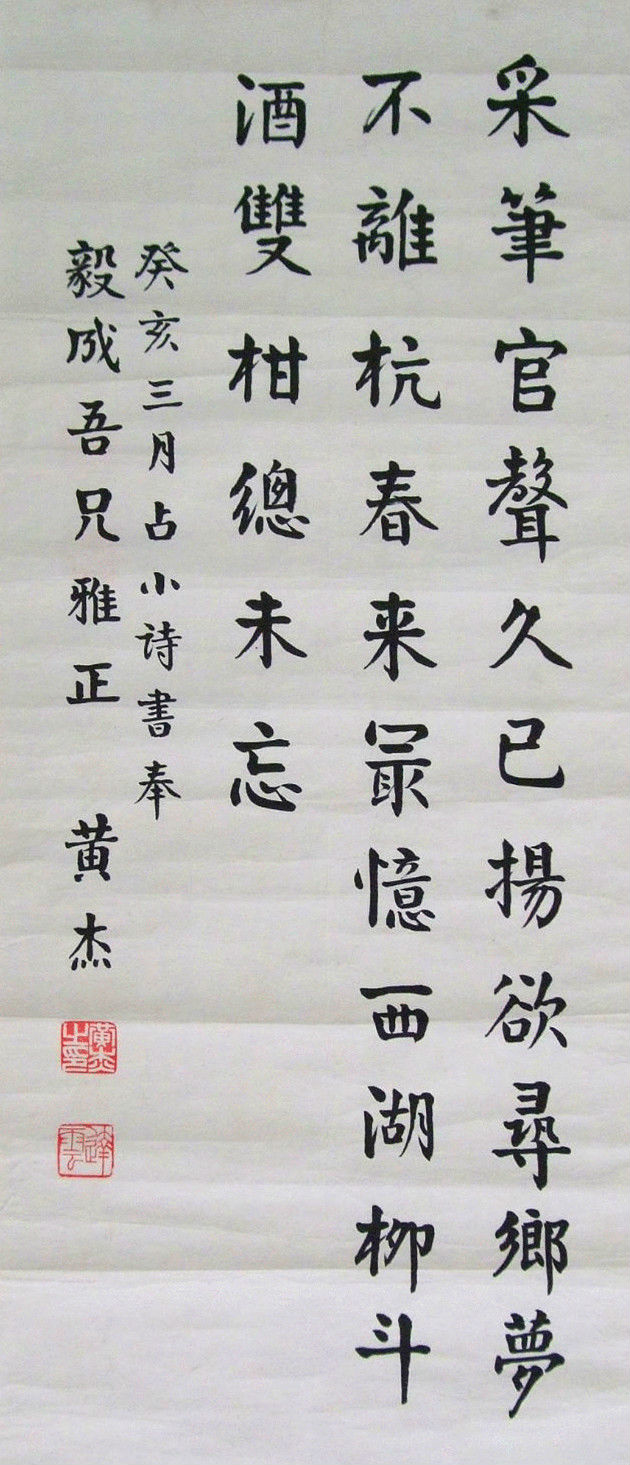 采筆官聲久已揚欲尋鄉夢
不離杭春来最憶西湖柳斗
酒雙柑總未忘
癸亥三月占小詩書奉
毅成吾兄雅正 黄杰
黄杰之印
達雲